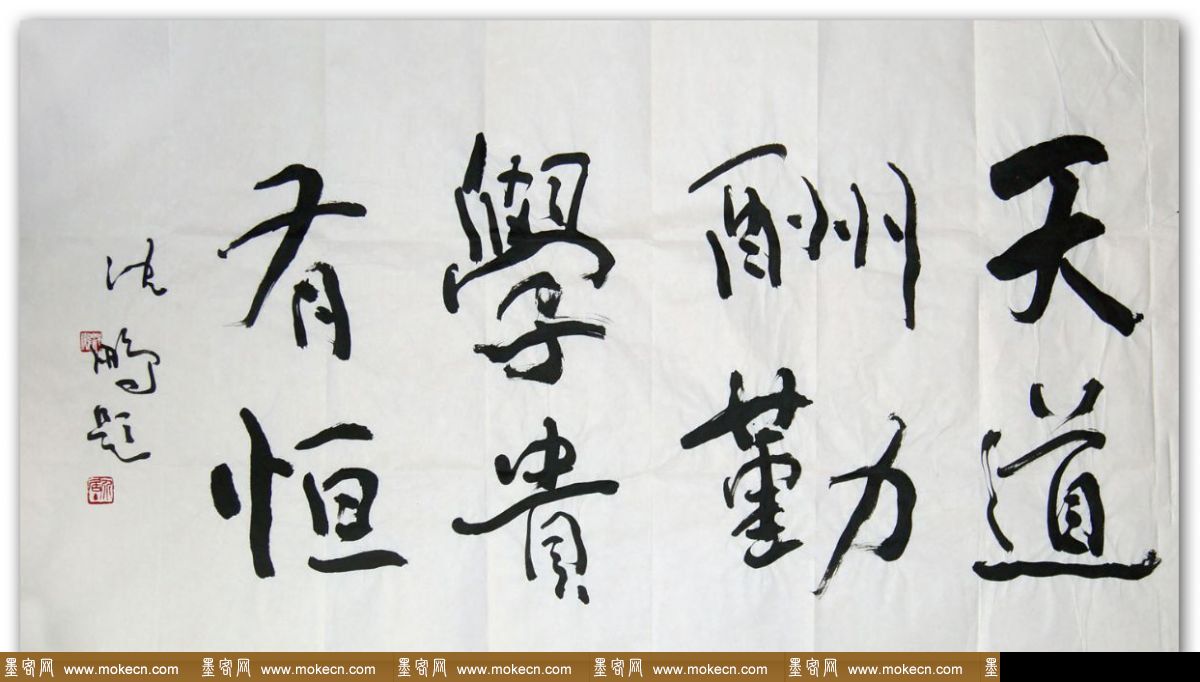 天道
酬勤
學貴
有恒
沈鵬題
墨客网 www.mokecn.com 墨客网 www.mokecn.com 墨客网 www.mokecn.com 墨客网 www.mokecn.com 墨客网 www.mokecn.com 墨